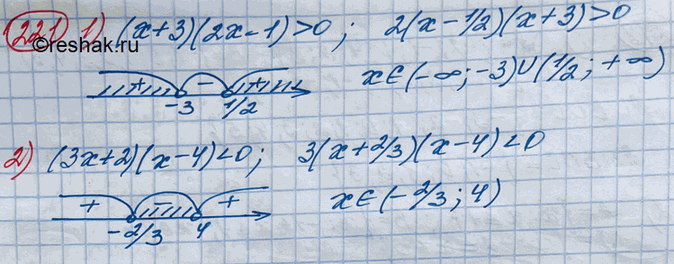 221 1) (x+3)(2x-1)>0; 2(x-1/2)(x+3)>0
©reshak.ru
+ - +
-3 1/2
x∈(-∞;-3)∪(1/2;+∞)
2) (3x+2)(x-4)<0; 3(x+2/3)(x-4)<0
+ - +
-2/3 4
x∈(-2/3;4)